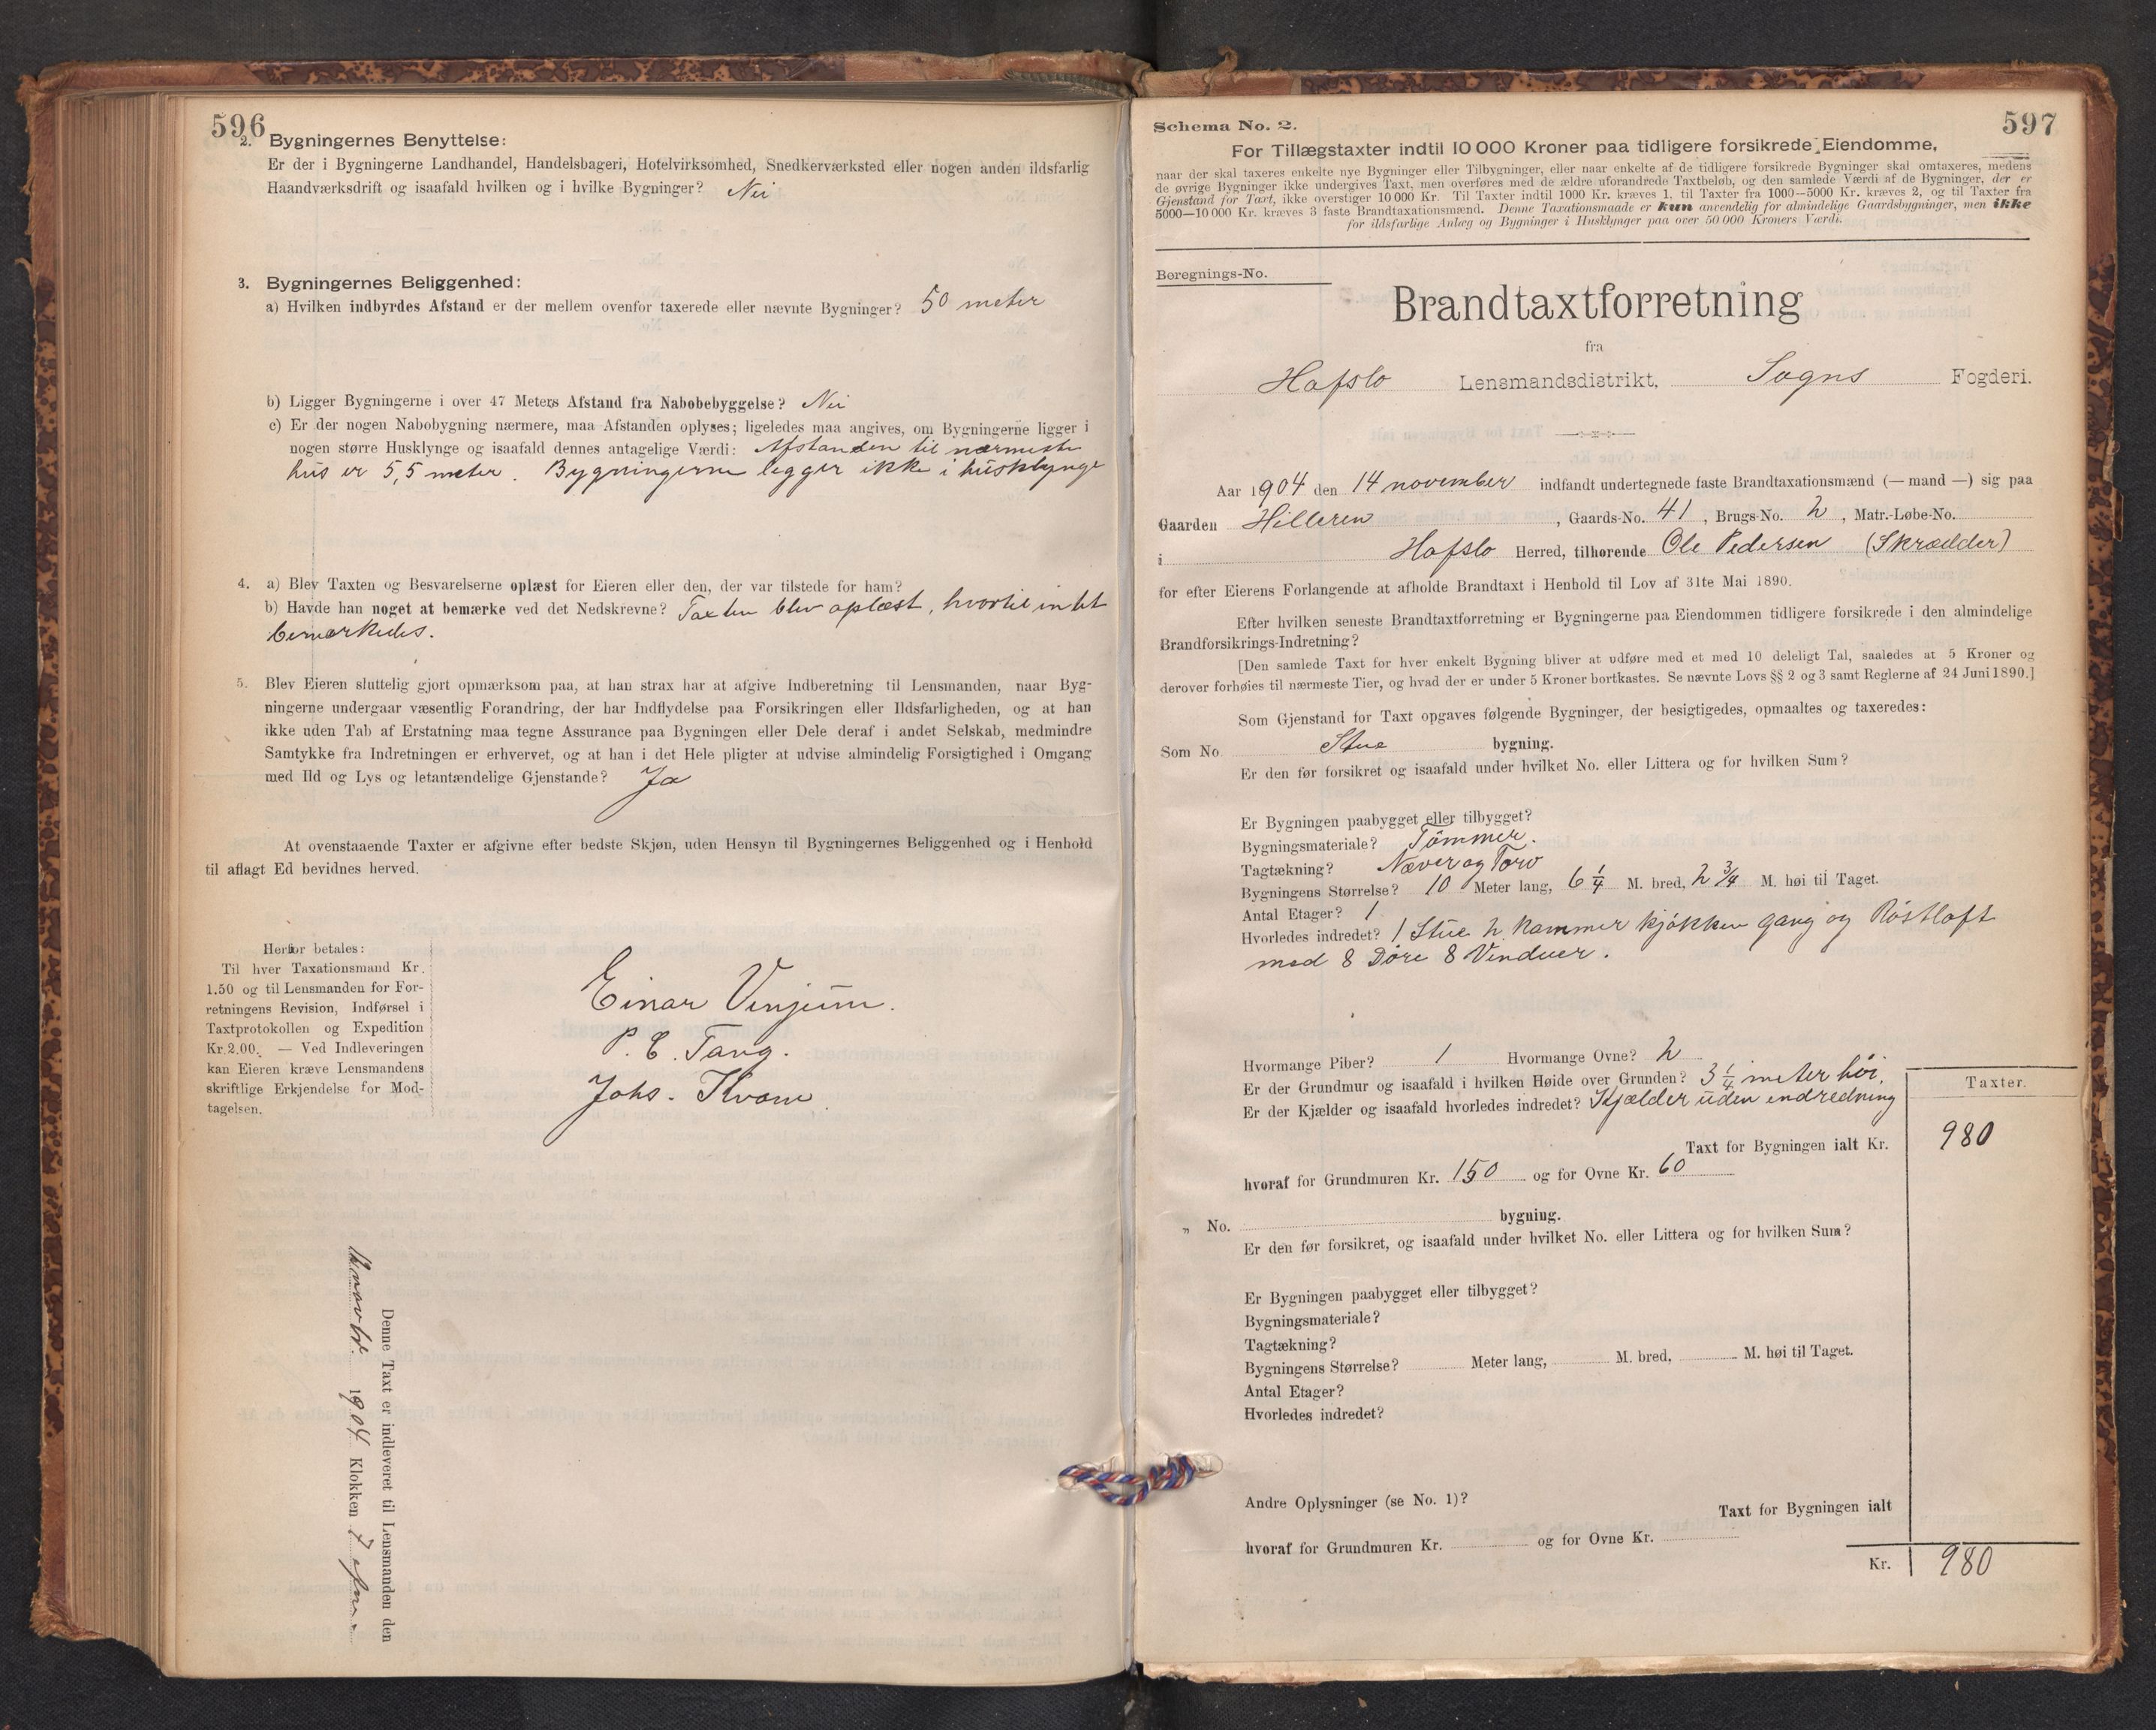 596
2. Bygningernes Benyttelse:
Er der i Bygningerne Landhandel, Handelsbageri, Hotelvirksomhed, Snedkerværksted eller nogen anden ildsfarlig
Haandværksdrift og isaafald hvilken og i hvilke Bygninger? Nei
3. Bygningernes Beliggenhed:
a) Hvilken indbyrdes Afstand er der mellem ovenfor taxerede eller nævnte Bygninger? 50 meter
b) Ligger Bygningerne i over 47 Meters Afstand fra Nabobebyggelse? Nei
c) Er der nogen Nabobygning nærmere, maa Afstanden oplyses; ligeledes maa angives, om Bygningerne ligger i
nogen større Husklynge og isaafald dennes antagelige Værdi: Afstanden til nærmeste
hus er 5,5 meter. Bygningerne legger ikke i husklynge
4. a) Blev Taxten og Besvarelserne oplæst for Eieren eller den, der var tilstede for ham?
b) Havde han noget at bemærke ved det Nedskrevne? Taxten blev oplæst, hvortil intet
bemærkedes.
5. Blev Eieren sluttelig gjort opmærksom paa, at han strax har at afgive Indberetning til Lensmanden, naar Byg-
ningerne undergaar væsentlig Forandring, der har Indflydelse paa Forsikringen eller Ildsfarligheden, og at han
ikke uden Tab af Erstatning maa tegne Assurance paa Bygningen eller Dele deraf i andet Selskab, medmindre
Samtykke fra Indretningen er erhvervet, og at han i det Hele pligter at udvise almindelig Forsigtighed i Omgang
med Ild og Lys og letantændelige Gjenstande? Ja
At ovenstaaende Taxter er afgivne efter bedste Skjøn, uden Hensyn til Bygningernes Beliggenhed og i Henhold
til aflagt Ed bevidnes herved.
Herfor betales:
Til hver Taxationsmand Kr.
1.50 og til Lensmanden for For-
retningens Revision, Indførsel i
Taxtprotokollen og Expedition
Kr. 2.00. — Ved Indleveringen
kan Eieren kræve Lensmandens
skriftlige Erkjendelse for Mod-
tagelsen.
Einar Venjum.
P. E. Tang.
Johs. Kvam
Denne Taxt er indleveret til Lensmanden den
novbr. 1904 Klokken 7
Schema No. 2.
597
For Tillægstaxter indtil 10 000 Kroner paa tidligere forsikrede Eiendomme,
naar der skal taxeres enkelte nye Bygninger eller Tilbygninger, eller naar enkelte af de tidligere forsikrede Bygninger skal omtaxeres, medens
de øvrige Bygninger ikke undergives Taxt, men overføres med de ældre uforandrede Taxtbeløb, og den samlede Værdi af de Bygninger, der er
Gjenstand for Taxt, ikke overstiger 10 000 Kr. Til Taxter indtil 1000 Kr. kræves 1, til Taxter fra 1000—5000 Kr. kræves 2, og til Taxter fra
5000—10 000 Kr. kræves 3 faste Brandtaxationsmænd. Denne Taxationsmaade er kun anvendelig for almindelige Gaardsbygninger, men ikke
for ildsfarlige Anlæg og Bygninger i Husklynger paa over 50 000 Kroners Værdi.
Beregnings-No.
Brandtaxtforretning
fra
Hafslo Lensmandsdistrikt, Sogns Fogderi.
Aar 1904 den 14 november indfandt undertegnede faste Brandtaxationsmænd (— mand —) sig paa
Gaarden Hilleren, Gaards-No. 41, Brugs-No. 2, Matr.-Løbe-No.
i Hafslo Herred, tilhørende Ole Pedersen (Skrædder)
for efter Eierens Forlangende at afholde Brandtaxt i Henhold til Lov af 31te Mai 1890.
Efter hvilken seneste Brandtaxtforretning er Bygningerne paa Eiendommen tidligere forsikrede i den almindelige
Brandforsikrings-Indretning?
[Den samlede Taxt for hver enkelt Bygning bliver at udføre med et med 10 deleligt Tal, saaledes at 5 Kroner og
derover forhøies til nærmeste Tier, og hvad der er under 5 Kroner bortkastes. Se nævnte Lovs §§ 2 og 3 samt Reglerne af 24 Juni 1890.]
Som Gjenstand for Taxt opgaves følgende Bygninger, der besigtigedes, opmaaltes og taxeredes:
Som No. Stue bygning.
Er den før forsikret og isaafald under hvilket No. eller Littera og for hvilken Sum?
Er Bygningen paabygget eller tilbygget?
Bygningsmateriale? Tømmer.
Tagtækning? Næver og Torv
Bygningens Størrelse? 10 Meter lang, 6 1/4 M. bred, 2 3/4 M. høi til Taget.
Antal Etager? 1
Hvorledes indredet? 1 Stue 2 kammer kjøkken gang og Røstloft
med 8 Døre 8 Vinduer.
Hvormange Piber? 1 Hvormange Ovne? 2
Er der Grundmur og isaafald i hvilken Høide over Grunden? 3 1/4 meter høi.
Er der Kjælder og isaafald hvorledes indredet? Kjælder uden endredning
Taxter.
Taxt for Bygningen ialt Kr. 980
hvoraf for Grundmuren Kr. 150 og for Ovne Kr. 60
„ No. bygning.
Er den før forsikret, og isaafald under hvilket No. eller Littera og for hvilken Sum?
Er Bygningen paabygget eller tilbygget?
Bygningsmateriale?
Tagtækning?
Bygningens Størrelse? Meter lang, M. bred, M. høi til Taget.
Antal Etager?
Hvorledes indredet?
Andre Oplysninger (se No. 1)?
Taxt for Bygningen ialt
hvoraf for Grundmuren Kr. og for Ovne Kr.
Kr. 980